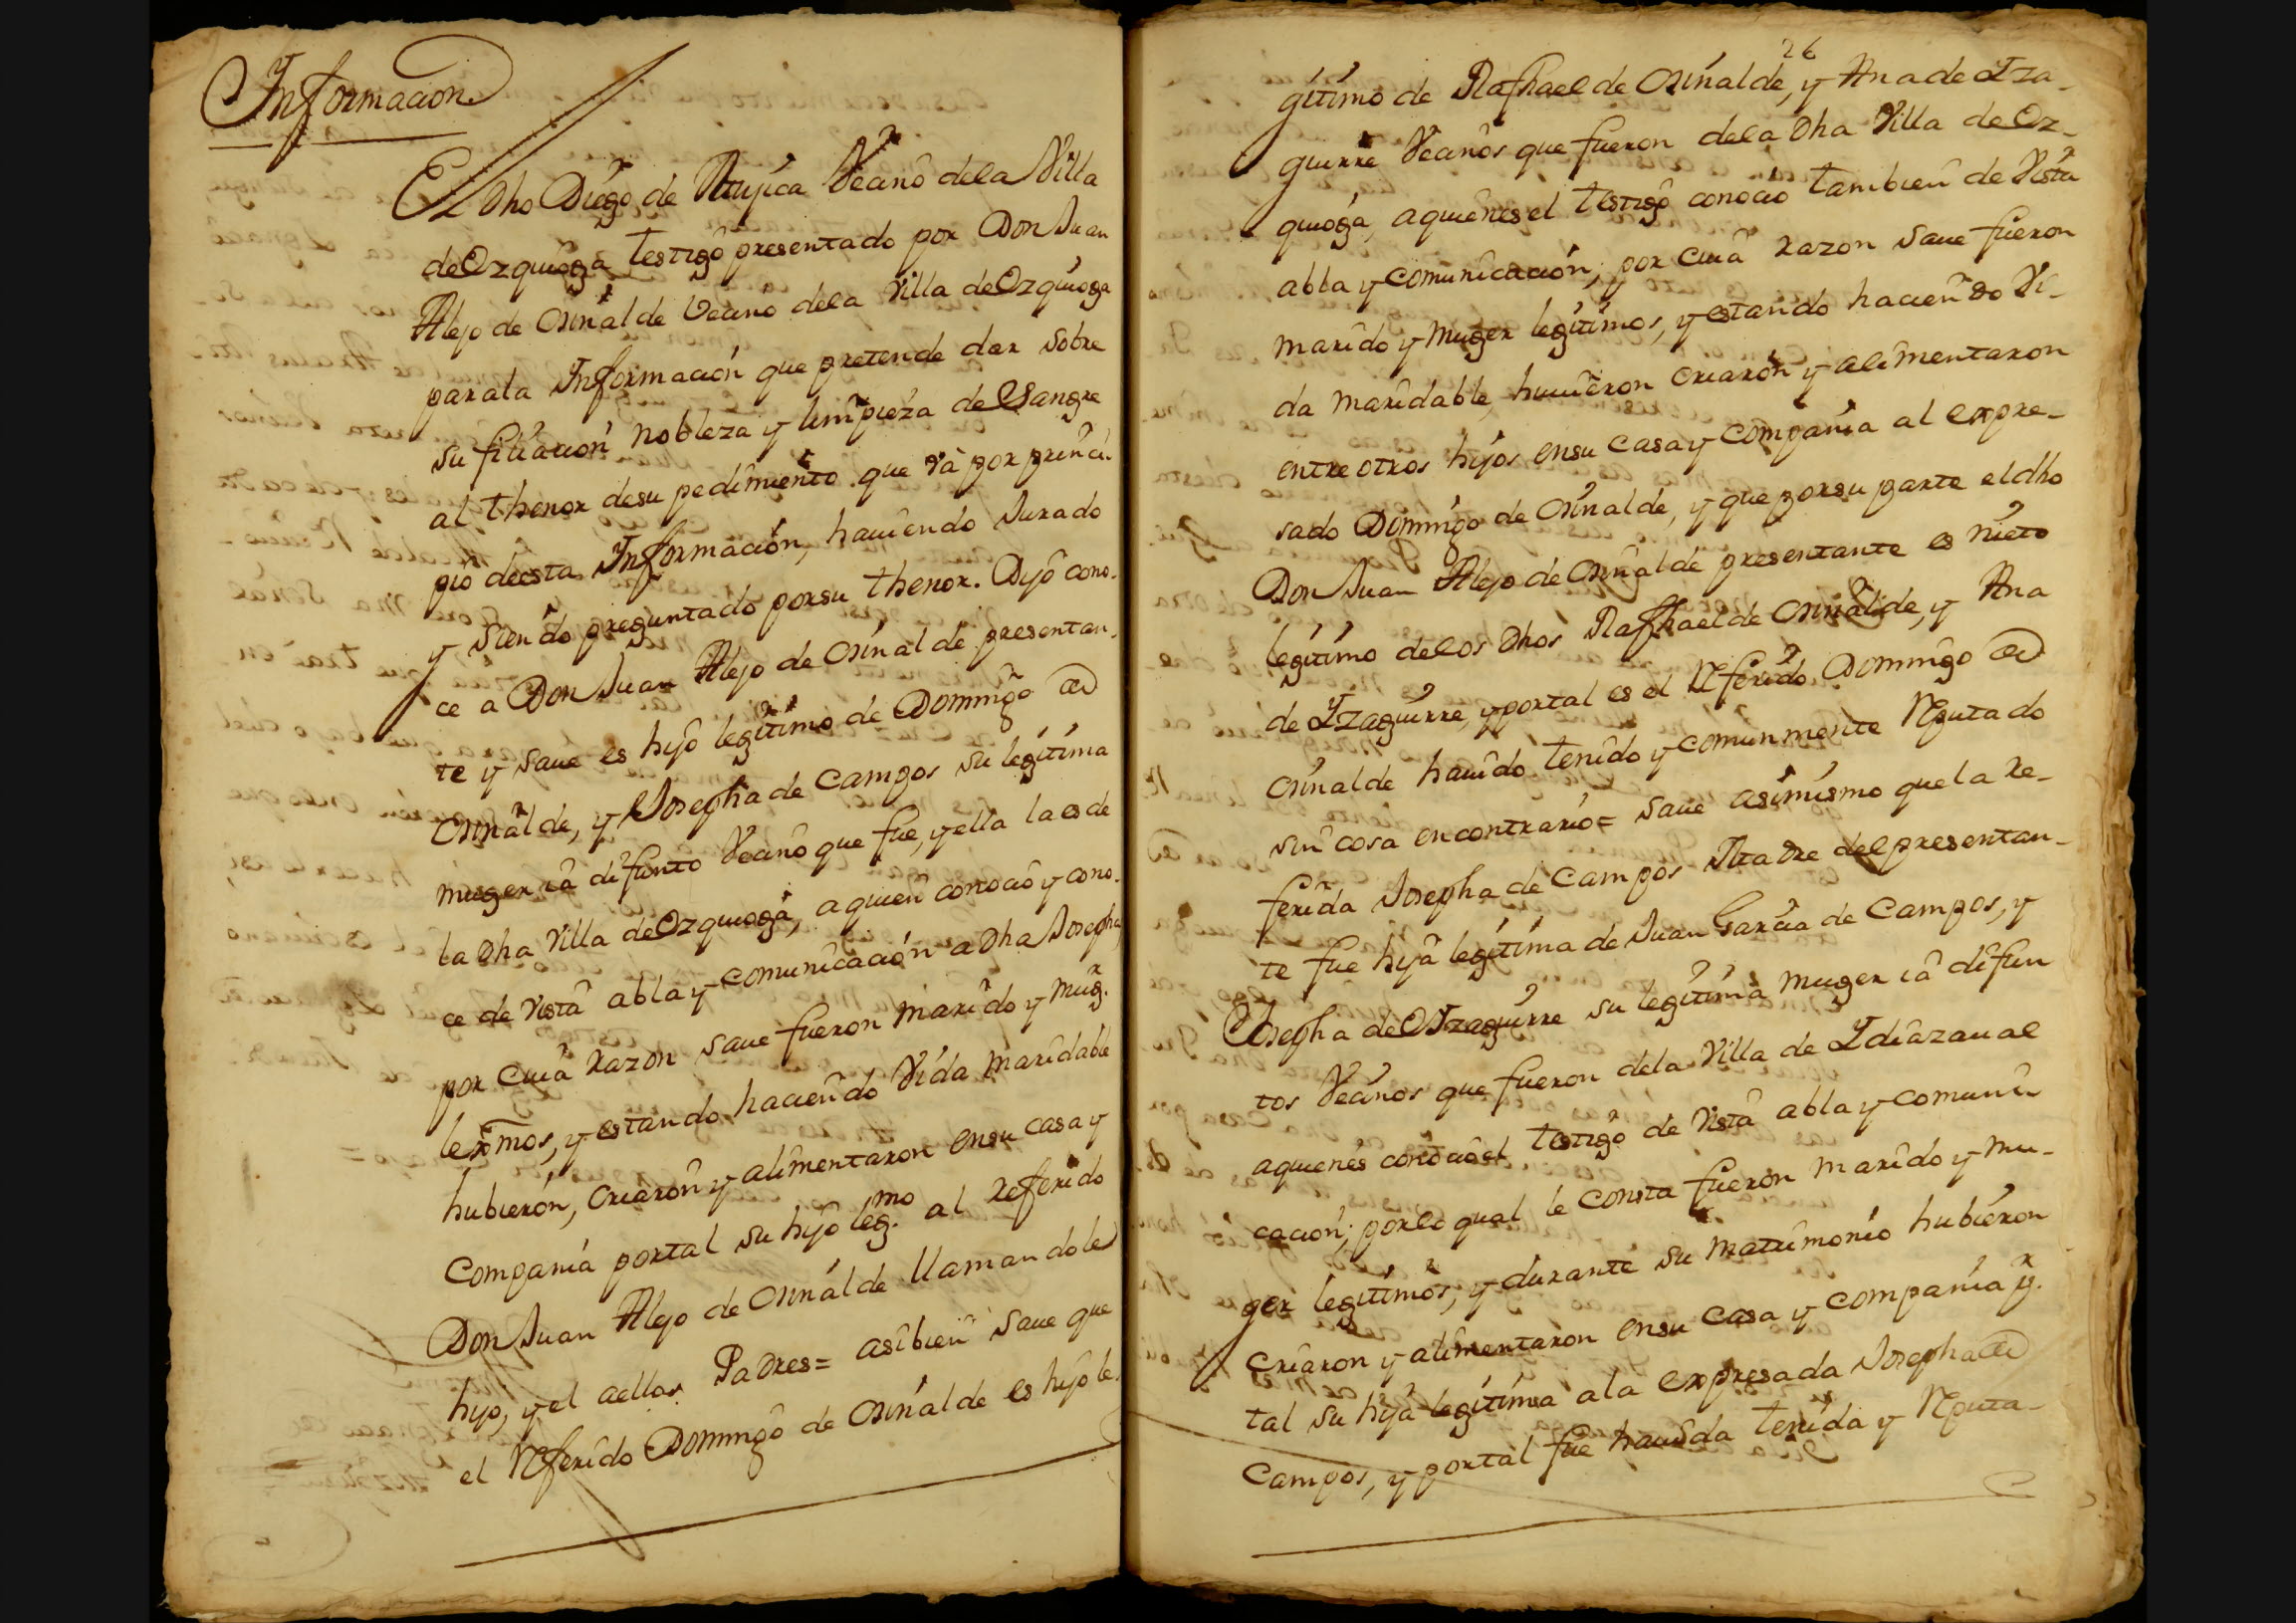 Informacion
El Dho Diego de Mujica Vecino dela Villa
de Ozquioga testigo presentado por Don Juan
Alejo de Osinalde Vecino dela Villa de Ozquioga
parala Informacion que pretende dar sobre
su filiacion nobleza y limpieza de Sangre
al thenor desu pedimiento que và por princi-
pio deesta Informacion, haviendo Jurado
y siendo preguntado porsu thenor. Dijo cono-
ce a Don Juan Alejo de Osinalde presentan-
te y saue es hijo legitimo de Domingo de
Osinalde, y Josepha de Campos su legitima
muger ia difunto Vecino que fue, y ella la es de
la Dha Villa de Ozquioga, a quien conocio y cono-
ce de Vista abla y comunicacion a Dha Josepha
por cuia razon saue fueron marido y mug.
lexmos, y estando haciendo Vida maridable
hubieron, criaron y alimentaron ensu casa y
Compania portal su hijo leg.mo al referido
Don Juan Alejo de Osinalde llamandole
hijo, y el aellos Padres= asibien saue que
el Referido Domingo de Osinalde es hijo le-
26
gitimo de Raphael de Osinalde, y Ana de Yza-
guirre Vecinos que fueron dela Dha Villa de Oz-
quioga, aquienes el testigo conocio tambien de Vista
abla y comunicacion; por cuia razon saue fueron
marido y muger legitimos, y estando haciendo Vi-
da maridable, huuieron criaron y alimentaron
entre otros hijos ensu casa y compania al expre-
sado Domingo de Osinalde, y que porsu parte el dho
Don Juan Alejo de Osinalde presentante es nieto
legitimo delos Dhos Raphael de Osinalde, y Ana
de Yzaguirre, y portal es el Referido Domingo de
Osinalde hauido tenido y comunmente Reputado
sin cosa encontrario= saue asimismo quela re-
ferida Josepha de Campos Madre del presentan-
te fue hija legitima de Juan Garcia de Campos, y
Josepha de Yzaguirre su legitima muger ia difun
tos Vecinos que fueron dela Villa de Ydiazaual
aquienes conocio el testigo de Vista abla y comuni
cacion; porlo qual le consta fueron marido y mu-
ger legitimos, y durante su matrimonio hubieron
criaron y alimentaron ensu casa y compania p.
tal su hija legitima ala expresada Josepha de
Campos, y portal fue hauida tenida y Reputa-